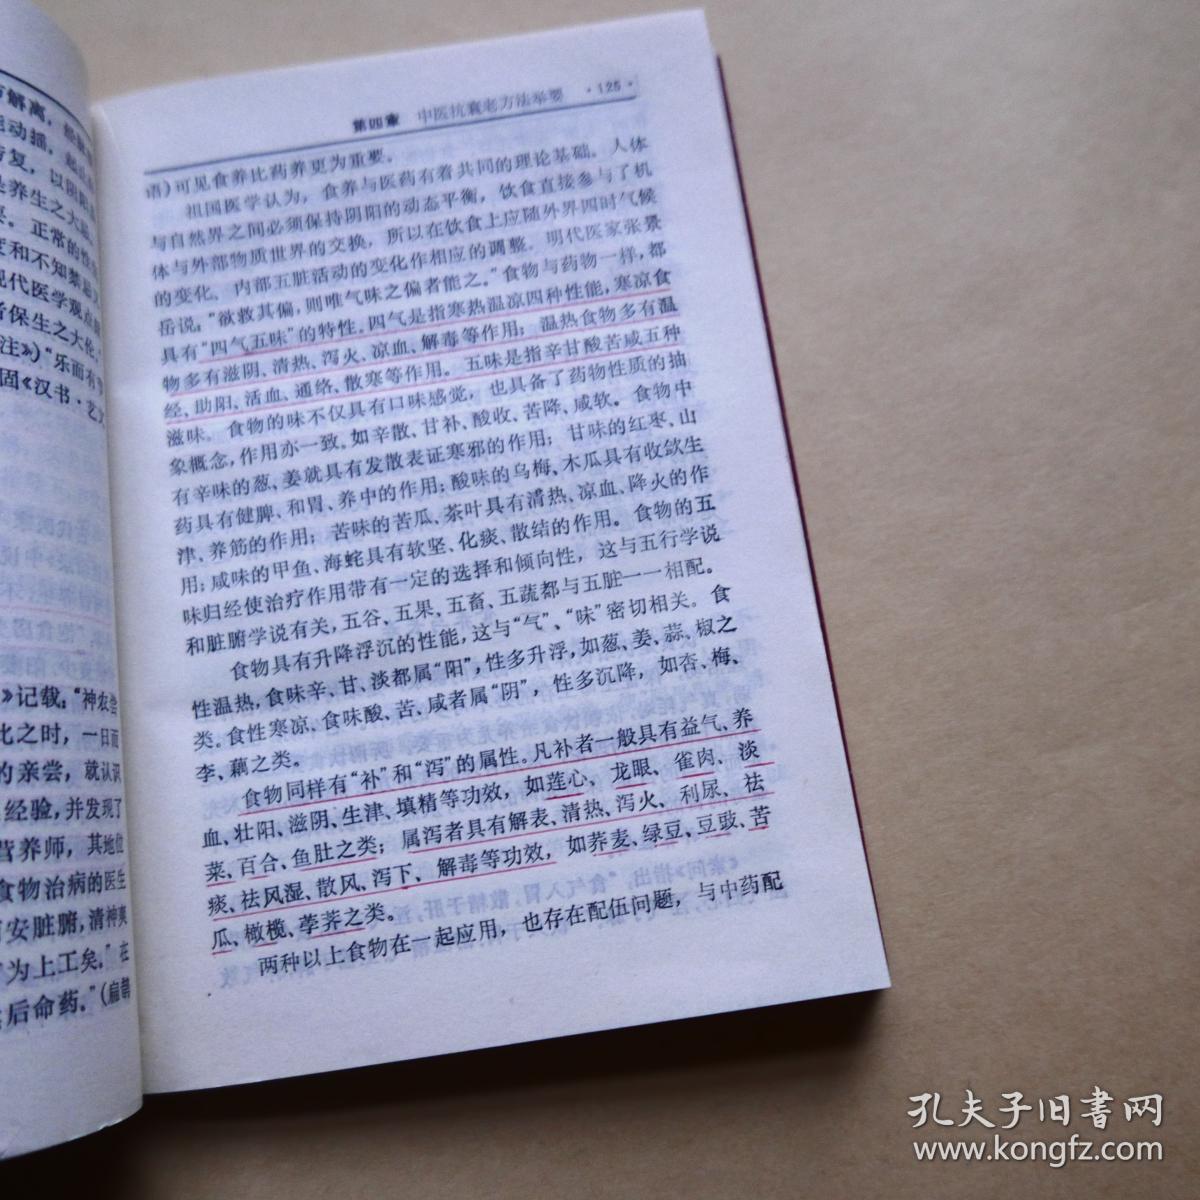 第四章 中医抗衰老方法举要 ·125·
语)可见食养比药养更为重要。
祖国医学认为，食养与医药有着共同的理论基础。人体
与自然界之间必须保持阴阳的动态平衡，饮食直接参与了机
体与外部物质世界的交换，所以在饮食上应随外界四时气候
的变化、内部五脏活动的变化作相应的调整。明代医家张景
岳说：“欲救其偏，则唯气味之偏者能之。”食物与药物一样，都
具有“四气五味”的特性。四气是指寒热温凉四种性能，寒凉食
物多有滋阴、清热、泻火、凉血、解毒等作用；温热食物多有温
经、助阳、活血、通络、散寒等作用。五味是指辛甘酸苦咸五种
滋味。食物的味不仅具有口味感觉，也具备了药物性质的抽
象概念，作用亦一致。如辛散、甘补、酸收、苦降、咸软。食物中
有辛味的葱、姜就具有发散表证寒邪的作用；甘味的红枣、山
药具有健脾、和胃、养中的作用；酸味的乌梅、木瓜具有收敛生
津、养筋的作用；苦味的苦瓜、茶叶具有清热、凉血、降火的作
用；咸味的甲鱼、海蛇具有软坚、化痰、散结的作用。食物的五
味归经使治疗作用带有一定的选择和倾向性，这与五行学说
和脏腑学说有关，五谷、五果、五畜、五蔬都与五脏一一相配。
食物具有升降浮沉的性能，这与“气”、“味”密切相关。食
性温热，食味辛、甘、淡都属“阳”，性多升浮，如葱、姜、蒜、椒之
类。食性寒凉、食味酸、苦、咸者属“阴”，性多沉降，如杏、梅、
李、藕之类。
食物同样有“补”和“泻”的属性。凡补者一般具有益气、养
血、壮阳、滋阴、生津、填精等功效，如莲心、龙眼、雀肉、淡
菜、百合、鱼肚之类；属泻者具有解表、清热、泻火、利尿、祛
痰、祛风湿、散风、泻下、解毒等功效，如荞麦、绿豆、豆豉、苦
瓜、橄榄、荸荠之类。
两种以上食物在一起应用，也存在配伍问题，与中药配
解离，
能动摇，
复，以阴阳
是养生之大
。正常的性
度和不知禁忌
现代医学观点
者保生之大伦，
注》)“乐而有
固《汉书·艺文
》记载：“神农尝
比之时，一日而
的亲尝，就认识
经验，并发现了
营养师，其地位
食物治病的医生
安脏腑，清神爽
为上工矣。”在
后命药。”(扁鹊
孔夫子旧书网
www.kongfz.com